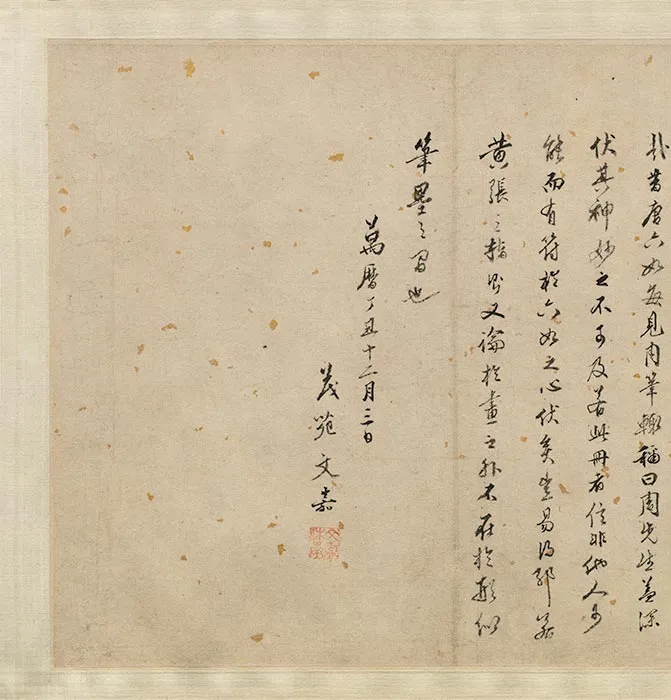 昔唐六如每見周筆輙稱曰周先生蓋深
伏其神妙之不可及若此冊者信非他人可
能而有符於六如之心伏矣豈易得耶若
黄張之指則又論於畫之外不在於形似
筆墨之間也
萬曆丁丑十二月三日
茂苑文嘉